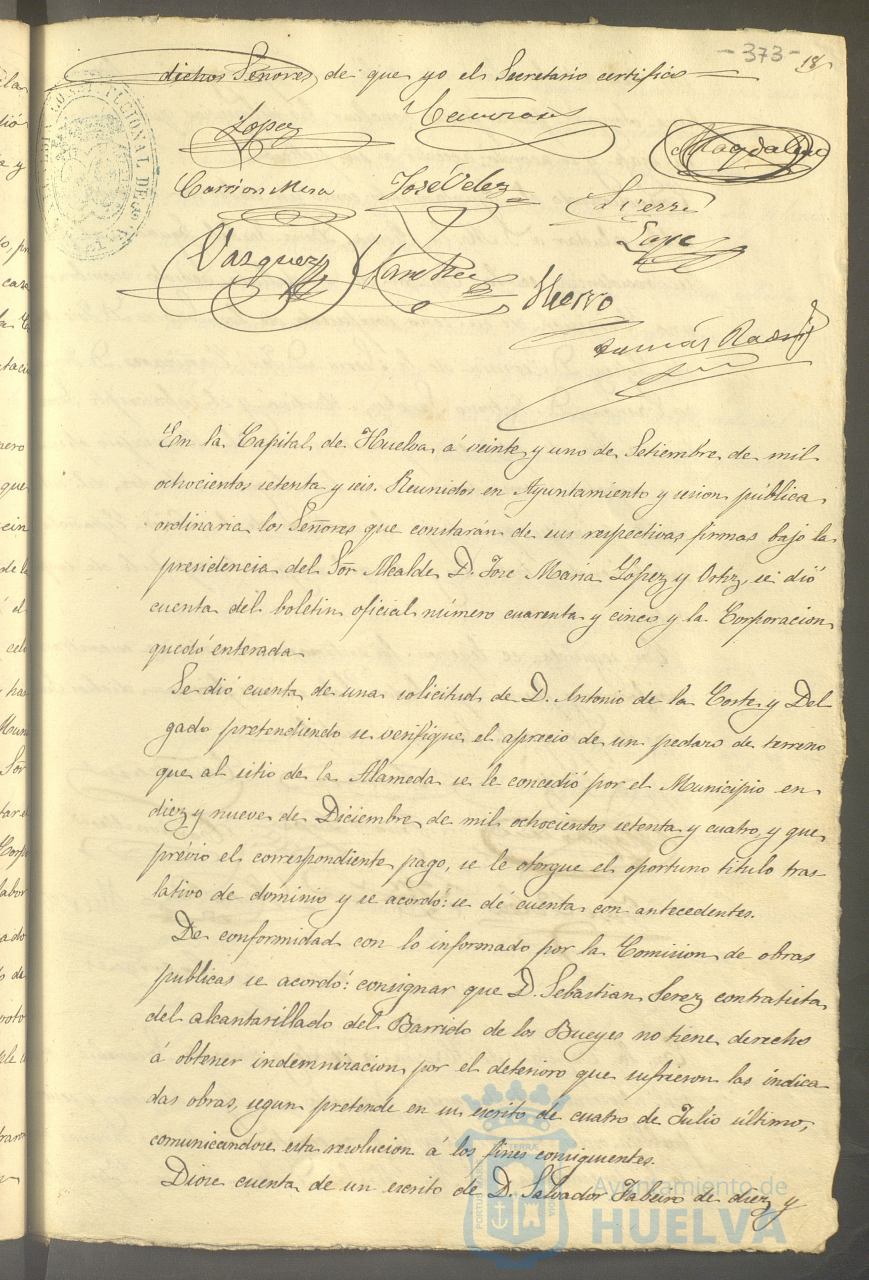 - 373 -
18
dichos Señores, de que yo el Secretario certifico
Lopez
Magdalena
Carrion Mesa José Velez
Vazquez Sanchez Hierro
Tomás
En la Capital de Huelva á veinte y uno de Setiembre de mil
ochocientos setenta y seis. Reunidos en Ayuntamiento y sesion pública
ordinaria los Señores que constarán de sus respectivas firmas bajo la
presidencia del Sor Alcalde D. Jose Maria Lopez y Ortiz, se dió
cuenta del boletin oficial número cuarenta y cinco y la Corporacion
quedó enterada
Se dió cuenta de una solicitud de D. Antonio de la Corte y Del
gado pretendiendo se verifique el aprecio de un pedazo de terreno
que al sitio de la Alameda se le concedió por el Municipio en
diez y nueve de Diciembre de mil ochocientos setenta y cuatro, y que,
prévio el correspondiente pago, se le otorgue el oportuno titulo tras
lativo de dominio y se acordó: se dé cuenta con antecedentes.
De conformidad con lo informado por la Comision de obras
publicas se acordó: consignar que D. Sebastian Serez contratista
del alcantarillado del Barrido de los Bueyes no tiene derecho
á obtener indemnizacion por el deterioro que sufrieron las indica
das obras, segun pretende en su escrito de cuatro de Julio último,
comunicandose esta resolucion á los fines consiguientes.
Diose cuenta de un escrito de D. Salvador de diez y
Ayuntamiento de
HUELVA